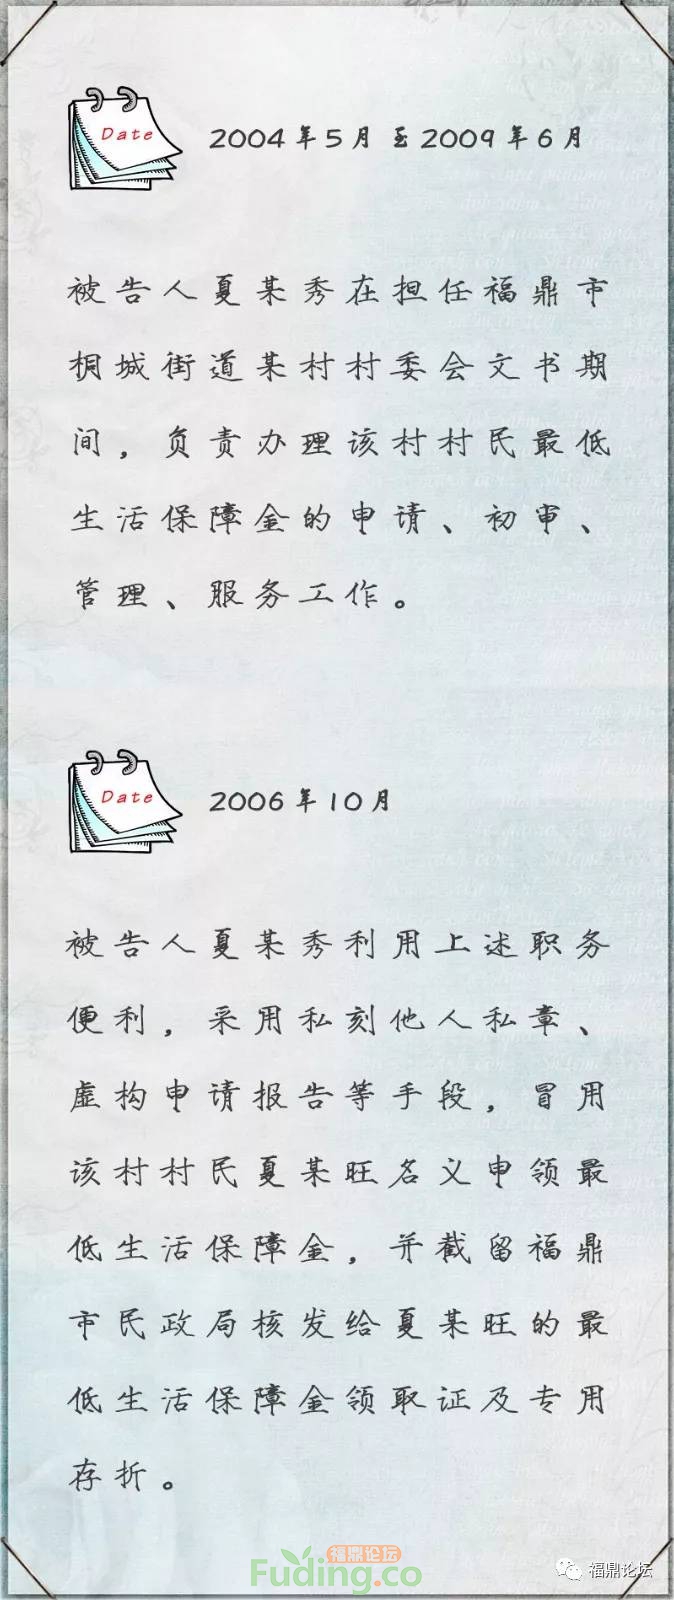 Date
2004年5月至2009年6月
被告人夏某秀在担任福鼎市
桐城街道某村村委会文书期
间，负责办理该村村民最低
生活保障金的申请、初审、
管理、服务工作。
Date
2006年10月
被告人夏某秀利用上述职务
便利，采用私刻他人私章、
虚构申请报告等手段，冒用
该村村民夏某旺名义申领最
低生活保障金，并截留福鼎
市民政局核发给夏某旺的最
低生活保障金领取证及专用
存折。
福鼎论坛
Fuding.co
福鼎论坛